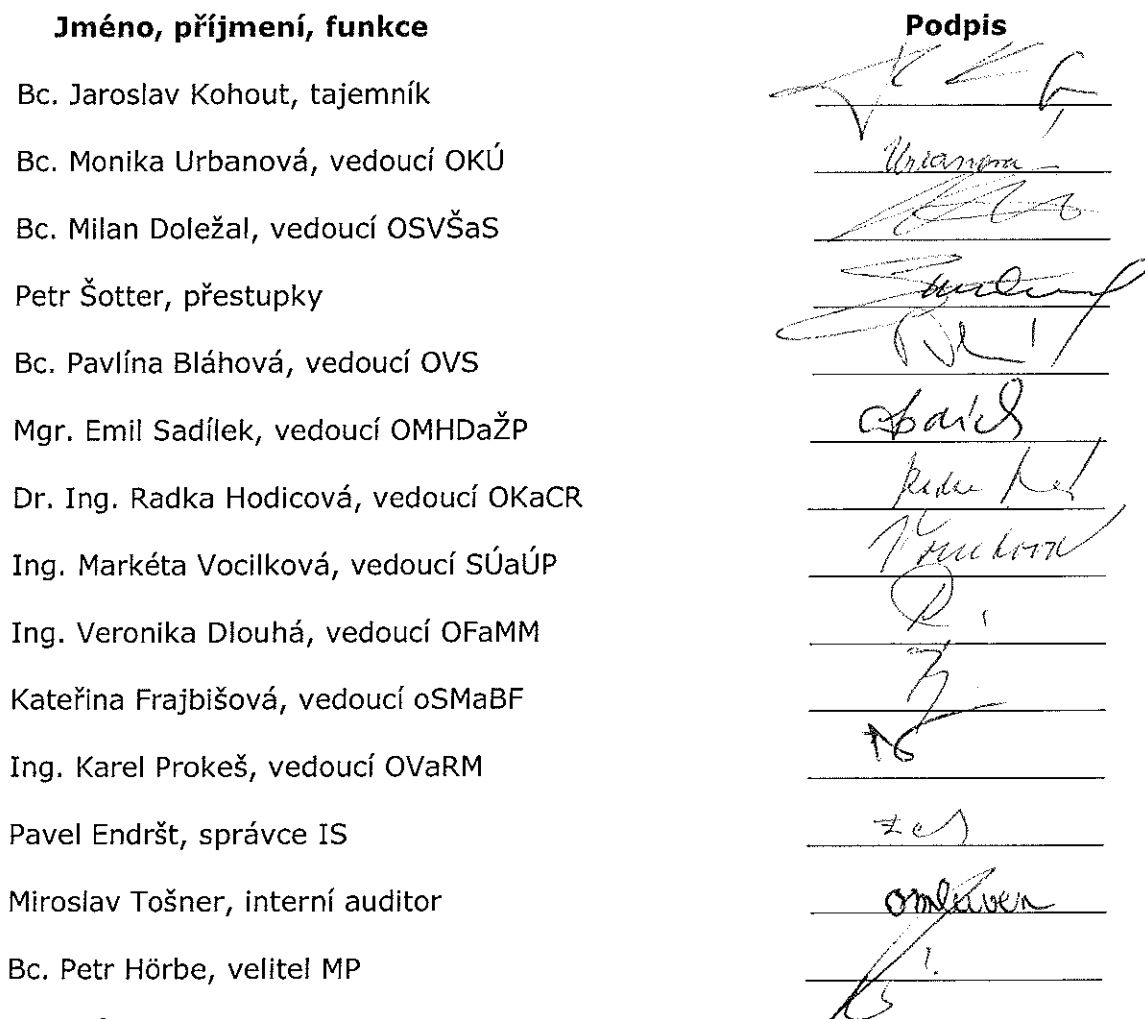 Jméno, příjmení, funkce Podpis
Bc. Jaroslav Kohout, tajemník
Bc. Monika Urbanová, vedoucí OKÚ Urbanová
Bc. Milan Doležal, vedoucí OSVŠaS
Petr Šotter, přestupky
Bc. Pavlína Bláhová, vedoucí OVS
Mgr. Emil Sadílek, vedoucí OMHDaŽP
Dr. Ing. Radka Hodicová, vedoucí OKaCR
Ing. Markéta Vocilková, vedoucí SÚaÚP
Ing. Veronika Dlouhá, vedoucí OFaMM
Kateřina Frajbišová, vedoucí oSMaBF
Ing. Karel Prokeš, vedoucí OVaRM
Pavel Endršt, správce IS
Miroslav Tošner, interní auditor omluven
Bc. Petr Hörbe, velitel MP